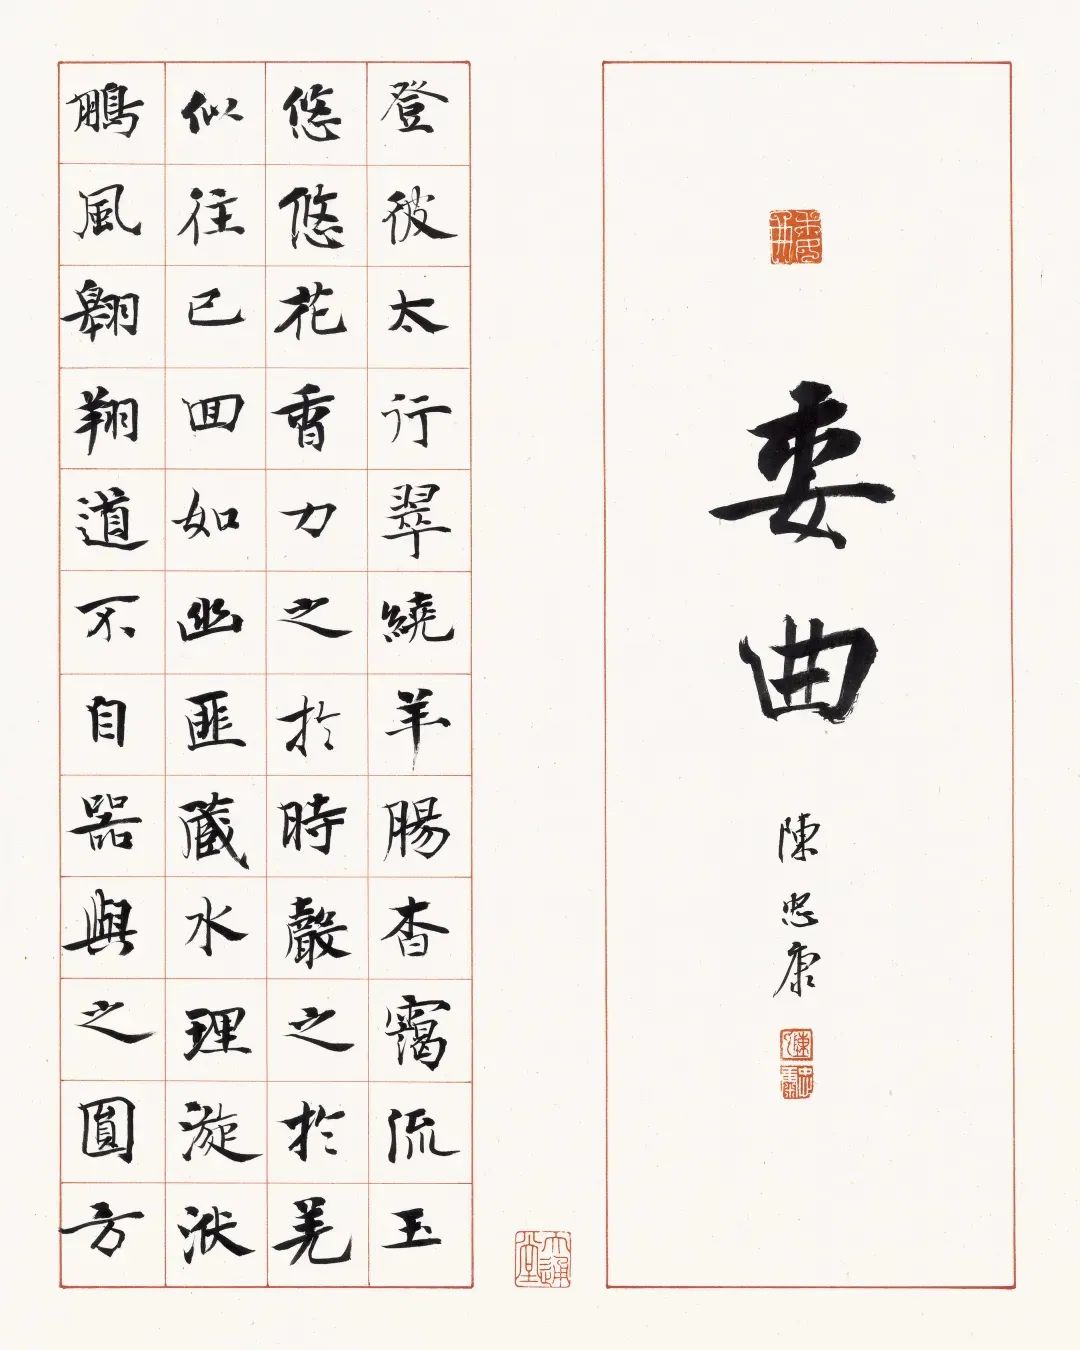 委曲
陳忠康
登彼太行翠繞羊腸杳靄流玉
悠悠花香力之於時聲之於羌
似往已回如幽匪藏水理漩洑
鵬風翱翔道不自器與之圓方